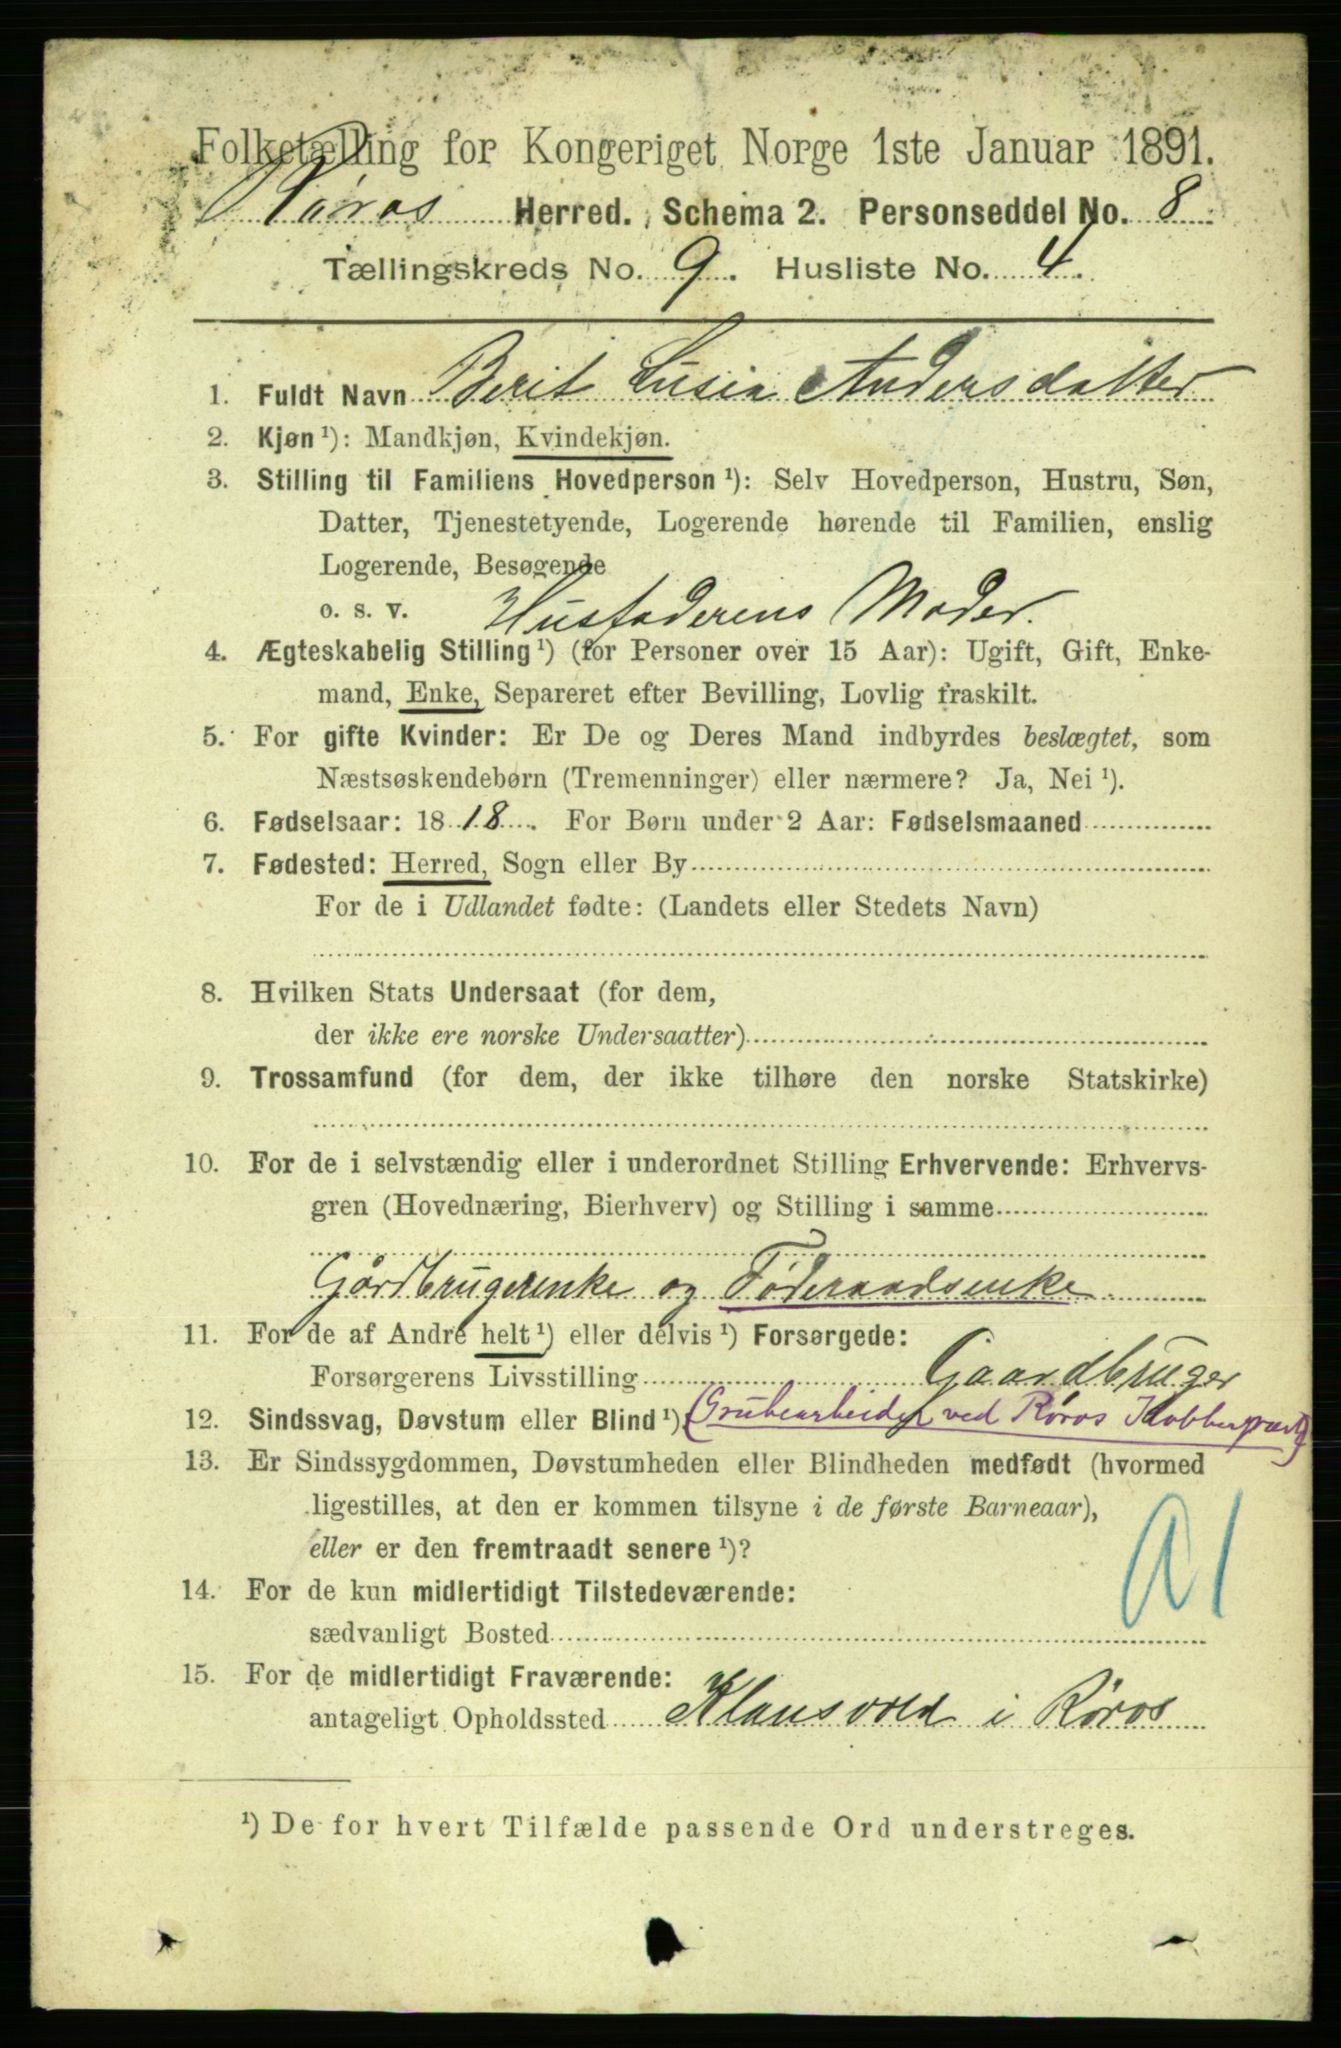 Folketælling for Kongeriget Norge 1ste Januar 1891.
Røros Herred. Schema 2. Personseddel No. 8.
Tællingskreds No. 9. Husliste No. 4.
1. Fuldt Navn Berit Lusia Andersdatter
2. Kjøn ¹): Mandkjøn, Kvindekjøn.
3. Stilling til Familiens Hovedperson ¹): Selv Hovedperson, Hustru, Søn,
Datter, Tjenestetyende, Logerende hørende til Familien, enslig
Logerende, Besøgende
o. s. v. Husfaderens Moder.
4. Ægteskabelig Stilling ¹) (for Personer over 15 Aar): Ugift, Gift, Enke-
mand, Enke, Separeret efter Bevilling, Lovlig fraskilt.
5. For gifte Kvinder: Er De og Deres Mand indbyrdes beslægtet, som
Næstsøskendebørn (Tremenninger) eller nærmere? Ja, Nei ¹).
6. Fødselsaar: 18 18. For Børn under 2 Aar: Fødselsmaaned
7. Fødested: Herred, Sogn eller By
For de i Udlandet fødte: (Landets eller Stedets Navn)
8. Hvilken Stats Undersaat (for dem,
der ikke ere norske Undersaatter)
9. Trossamfund (for dem, der ikke tilhøre den norske Statskirke)
10. For de i selvstændig eller i underordnet Stilling Erhvervende: Erhvervs-
gren (Hovednæring, Bierhverv) og Stilling i samme
Gårdbrugerenke og Føderaadsenke
11. For de af Andre helt ¹) eller delvis ¹) Forsørgede:
Forsørgerens Livsstilling Gaardbruger
12. Sindssvag, Døvstum eller Blind ¹). (Grubearbeider ved Røros Kobberværk)
13. Er Sindssygdommen, Døvstumheden eller Blindheden medfødt (hvormed
ligestilles, at den er kommen tilsyne i de første Barneaar),
eller er den fremtraadt senere ¹)?
14. For de kun midlertidigt Tilstedeværende:
sædvanligt Bosted
15. For de midlertidigt Fraværende:
antageligt Opholdssted Klausvold i Røros
¹) De for hvert Tilfælde passende Ord understreges.